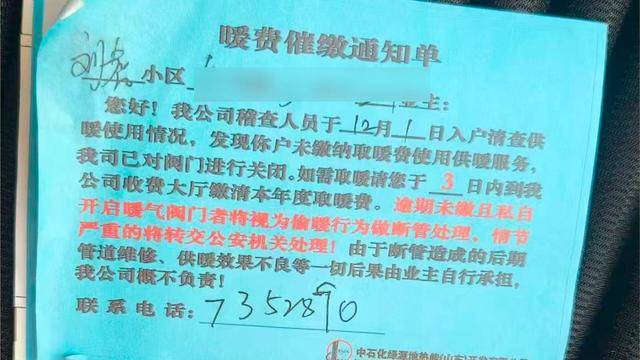 暖费催缴通知单
小区
业主:
您好!我公司稽查人员于12月1日入户清查供
暖使用情况,发现你户未缴纳取暖费使用供暖服务,
我司已对阀门进行关闭。如需取暖请您于3日内到我
公司收费大厅缴清本年度取暖费。逾期未缴且私自
开启暖气阀门者将视为偷暖行为做断管处理,情节
严重的将转交公安机关处理!由于断管造成的后期
管道维修、供暖效果不良等一切后果由业主自行承担,
我公司概不负责!
联系电话:7352890
中石化绿源地热能(山东)开发有限公司